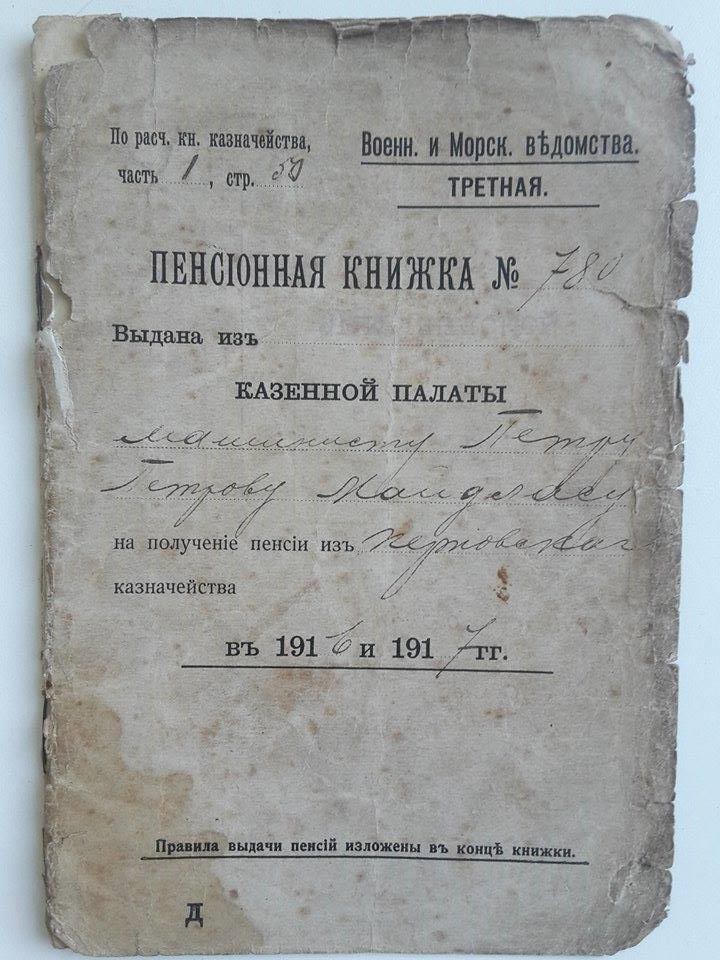 По расч. кн. казначейства,
часть 1, стр. 50
Военн. и Морск. вѣдомства.
ТРЕТНАЯ.
ПЕНСІОННАЯ КНИЖКА № 780
Выдана изъ
КАЗЕННОЙ ПАЛАТЫ
машинисту Петру
Петрову Майдласу
на полученіе пенсіи изъ Перновскаго
казначейства
въ 1916 и 1917 гг.
Правила выдачи пенсій изложены въ концѣ книжки.
Д